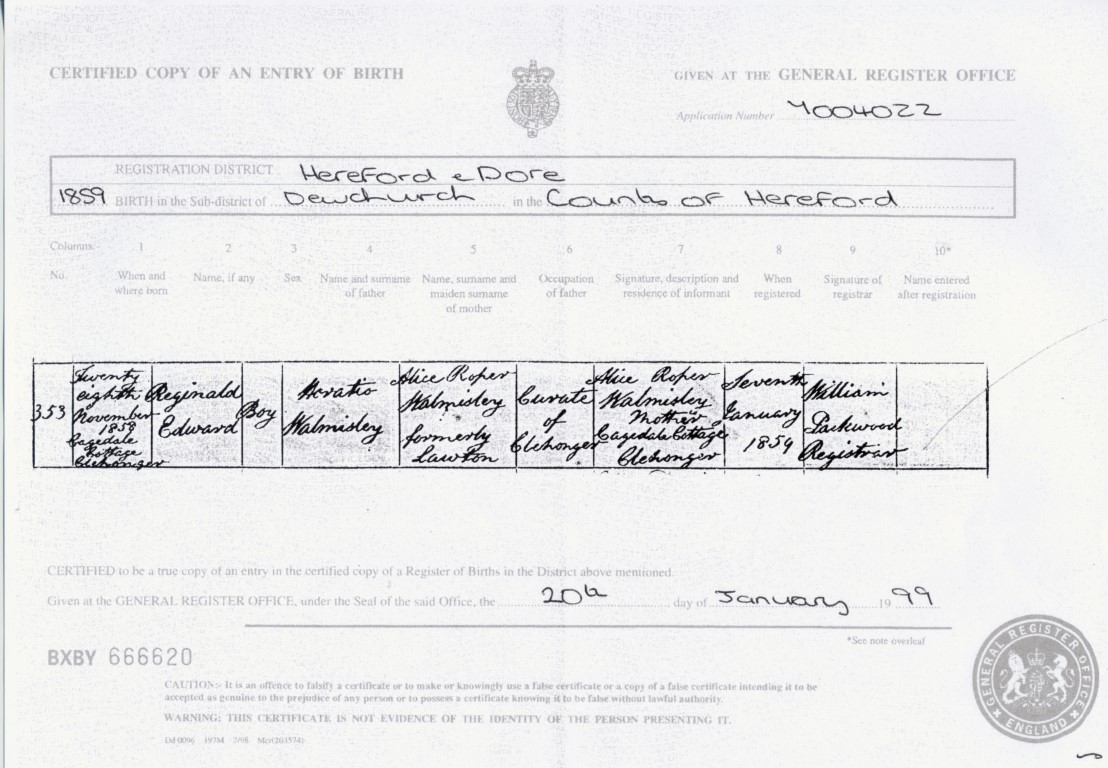 CERTIFIED COPY OF AN ENTRY OF BIRTH
GIVEN AT THE GENERAL REGISTER OFFICE
Application Number Y004022
REGISTRATION DISTRICT Hereford & Dore
1859 BIRTH in the Sub-district of Dewchurch in the County of Hereford
Columns:- 1 2 3 4 5 6 7 8 9 10*
No. When and where born Name, if any Sex Name and surname of father Name, surname and maiden surname of mother Occupation of father Signature, description and residence of informant When registered Signature of registrar Name entered after registration
353
Twenty
eighth
November
1858
Cagedale
Cottage
Clehonger
Reginald
Edward
Boy
Horatio
Walmisley
Alice Roper
Walmisley
formerly
Lawton
Curate
of
Clehonger
Alice Roper
Walmisley
Mother
Cagedale Cottage
Clehonger
Seventh
January
1859
William
Packwood
Registrar
CERTIFIED to be a true copy of an entry in the certified copy of a Register of Births in the District above mentioned.
Given at the GENERAL REGISTER OFFICE, under the Seal of the said Office, the 20th day of January 1999
*See note overleaf
BXBY 666620
CAUTION:- It is an offence to falsify a certificate or to make or knowingly use a false certificate or a copy of a false certificate intending it to be
accepted as genuine to the prejudice of any person or to possess a certificate knowing it to be false without lawful authority.
WARNING: THIS CERTIFICATE IS NOT EVIDENCE OF THE IDENTITY OF THE PERSON PRESENTING IT.
GENERAL REGISTER OFFICE
ENGLAND